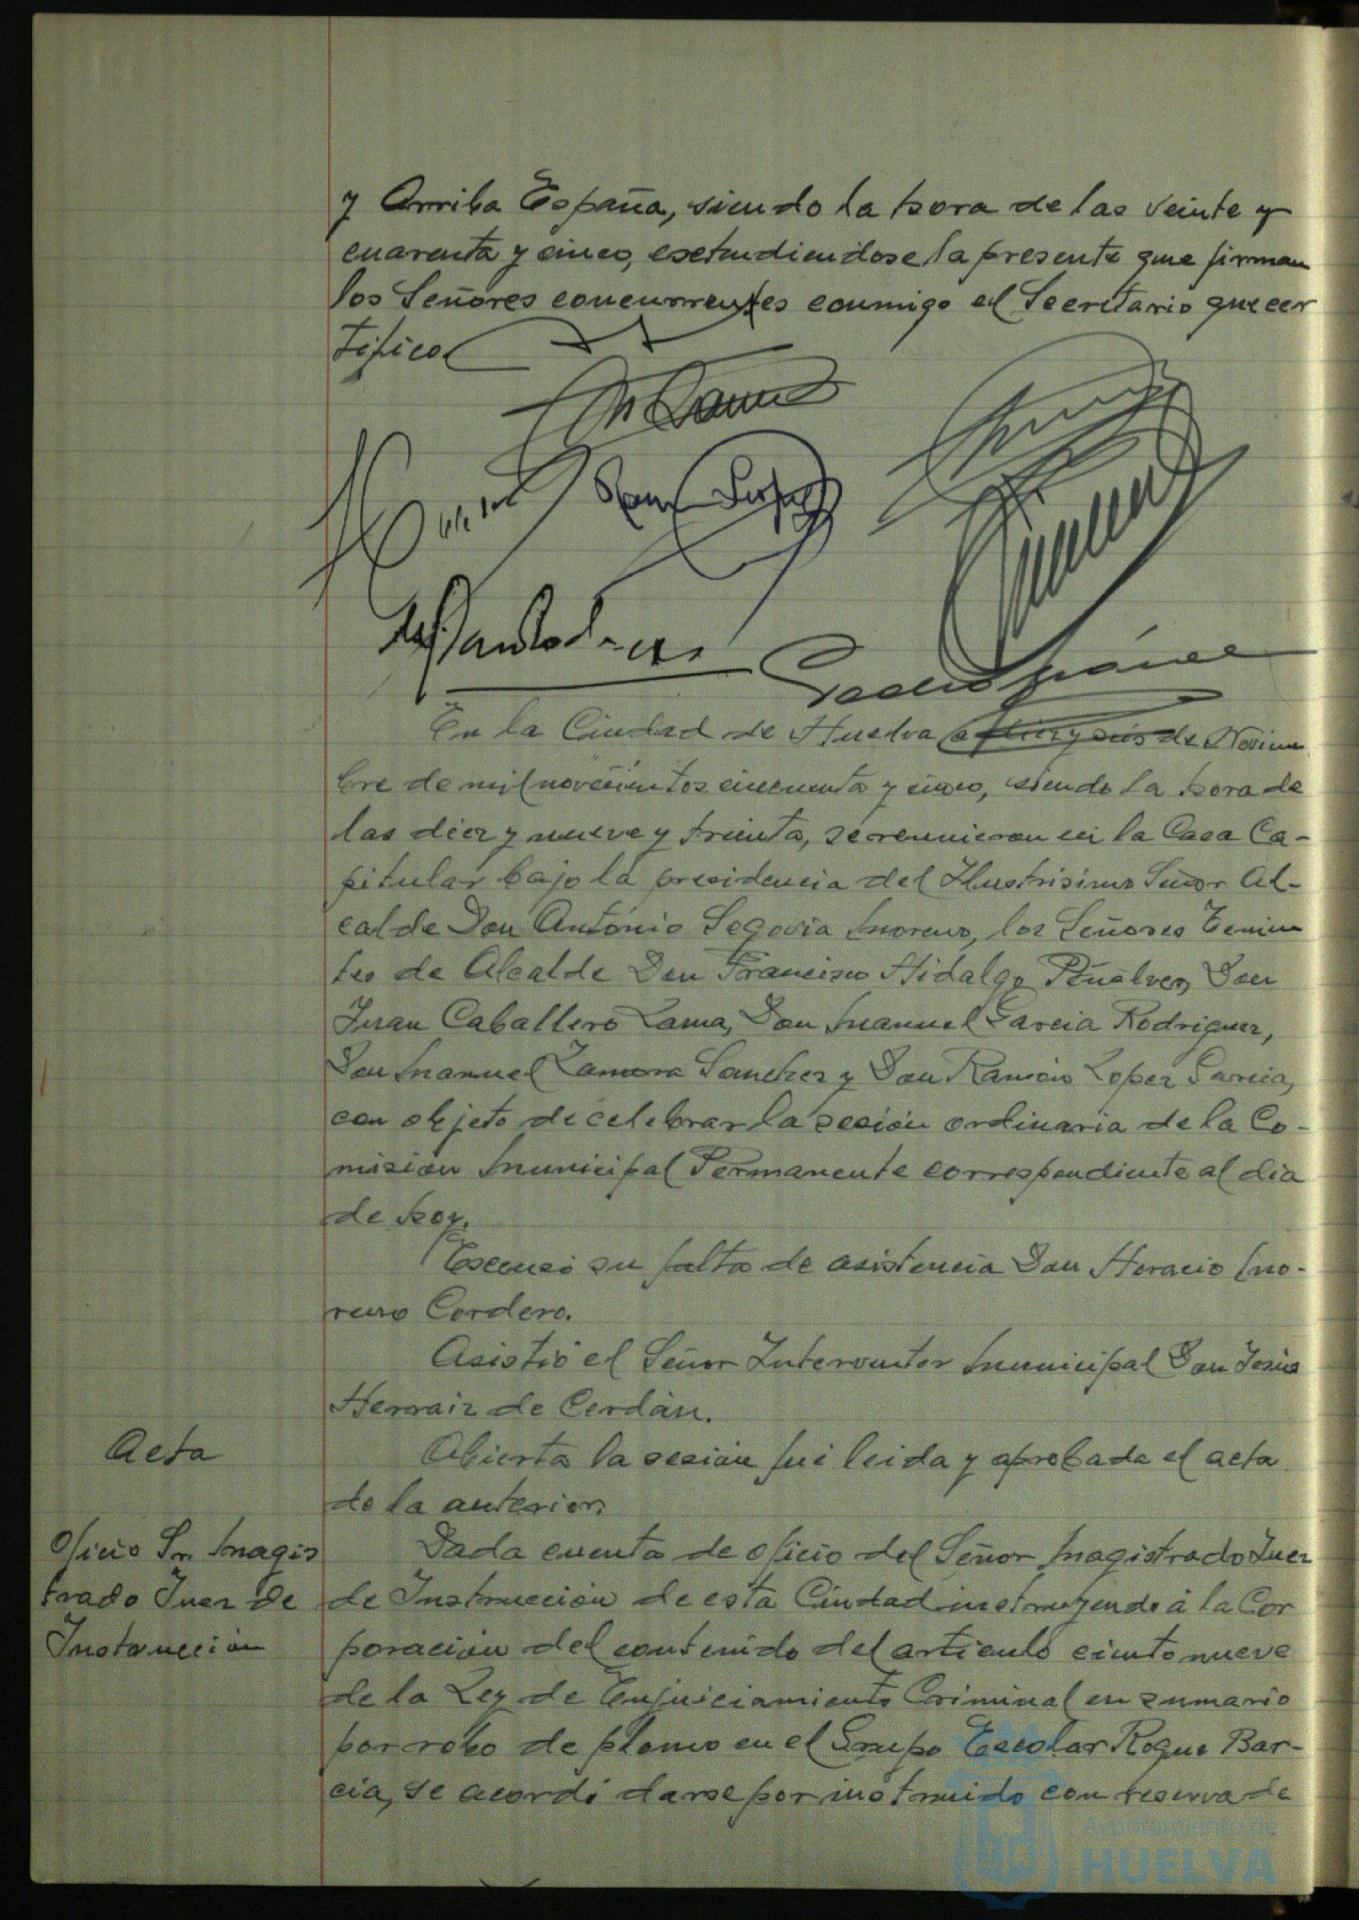 y Arriba España, siendo la hora de las veinte y
cuarenta y cinco, extendiendose la presente que firman
los Señores concurrentes conmigo el Secretario que cer
tifico.
En la Ciudad de Huelva a diez y seis de Noviem
bre de mil novecientos cincuenta y cinco, siendo la hora de
las diez y nueve y treinta, se reunieron en la Casa Ca-
pitular bajo la presidencia del Ilustrisimo Señor Al-
calde Don Antonio Segovia Moreno, los Señores Tenien
tes de Alcalde Don Francisco Hidalgo Peñalver, Don
Juan Caballero Lama, Don Manuel Garcia Rodriguez,
Don Manuel Zamora Sanchez y Don Ramón Lopez Garcia,
con objeto de celebrar la sesión ordinaria de la Co-
misión Municipal Permanente correspondiente al dia
de hoy.
Escusó su falta de asistencia Don Horacio Mo-
reno Cordero.
Asistió el Señor Interventor Municipal Don Jesús
Herraiz de Cerdán.
Acta
Abierta la sesión fué leida y aprobada el acta
de la anterior.
Oficio Sr. Magis
trado Juez de
Instrucción
Dada cuenta de oficio del Señor Magistrado Juez
de Instrucción de esta Ciudad instruyendo á la Cor
poración del contenido del articulo ciento nueve
de la Ley de Enjuiciamiento Criminal en sumario
por robo de plomo en el Grupo Escolar Roque Bar-
cia, se acordó darse por instruido con reserva de
Ayuntamiento de
HUELVA